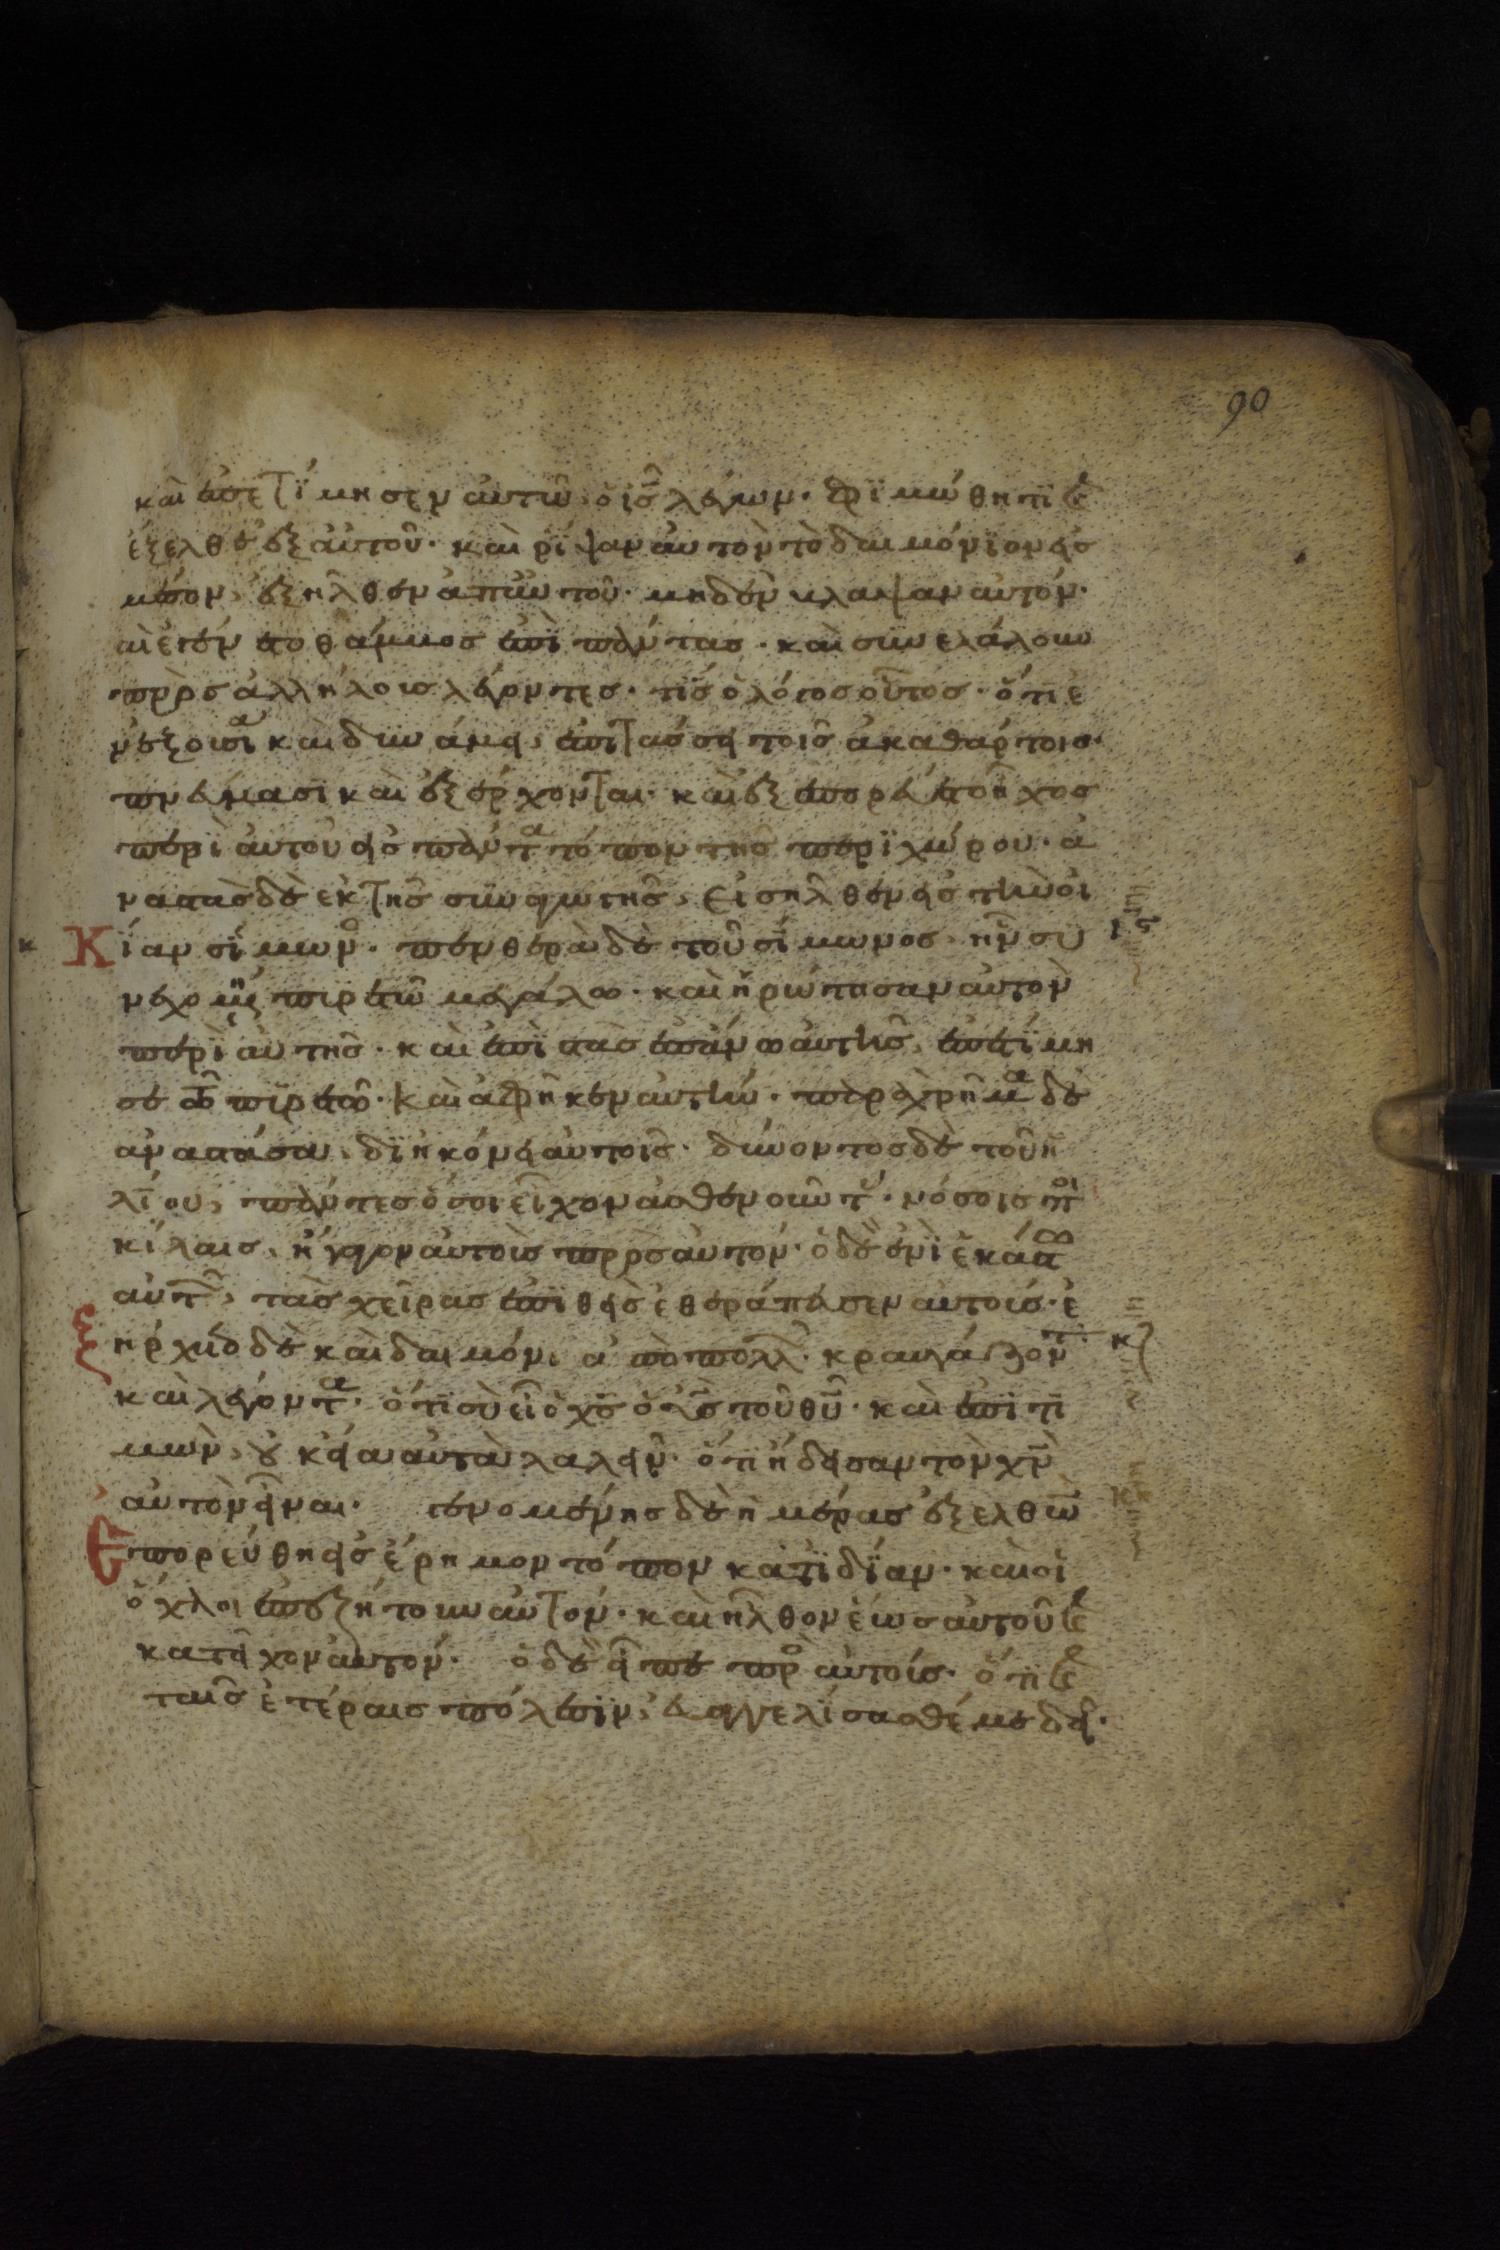 90
καὶ ἐπετίμησεν αὐτῶ ὁ ις̅ λέγων· φιμώθητι καὶ
ἔξελθε ἐξ αὐτοῦ· καὶ ρίψαν αὐτὸν τὸ δαιμόνιον εἰσ
μέσον, ἐξῆλθεν ἀπ' αὐτοῦ· μηδὲν βλάψαν αὐτόν·
καὶ ἐγένετο θάμβος ἐπὶ πάντασ· καὶ συνελάλουν
πρὸσ ἀλλήλουσ λέγοντεσ· τίσ ὁ λόγοσ οὗτοσ· ὅτι ἐ
ν ἐξουσία καὶ δυνάμει ἐπιτάσσει τοῖσ ἀκαθάρτοισ
πνεύμασι καὶ ἐξέρχονται· καὶ ἐξεπορεύετο ἦχοσ
περὶ αὐτοῦ εἰσ πάντα τόπον τῆσ περιχώρου· ἀ
ναστὰσ δὲ ἐκ τῆσ συναγωγῆσ, εἰσῆλθεν εἰσ τὴν οἰ
κ Κίαν σίμωνοσ· πενθερὰ δὲ τοῦ σίμωνοσ ἦν συ
νεχομένη πυρετῶ μεγάλω· καὶ ἠρώτησαν αὐτὸν
περὶ αὐτῆσ· καὶ ἐπιστὰσ ἐπάνω αὐτῆσ, ἐπετίμη
σε τῶ πυρετῶ· καὶ ἀφῆκεν αὐτήν· παραχρῆμα δὲ
ἀναστᾶσα, διηκόνει αὐτοῖσ· δύνοντοσ δὲ τοῦ ἡ
λίου, πάντεσ ὅσοι εἶχον ἀσθενοῦντασ νόσοισ ποι
κίλαισ, ἤγαγον αὐτοὺσ πρὸσ αὐτόν· ὁ δὲ ἑνὶ ἑκάστω
αὐτῶν, τὰσ χεῖρασ ἐπιθεὶσ ἐθεράπευσεν αὐτούσ· ἐ
ξήρχετο δὲ καὶ δαιμόνια ἀπὸ πολλῶν κραυγάζοντα
καὶ λέγοντα· ὅτι σὺ εἶ ὁ χς̅ ὁ υς̅ τοῦ θυ̅· καὶ ἐπιτι
μῶν, οὐκ εἴα αὐτὰ λαλεῖν· ὅτι ἤδεισαν τὸν χν̅
αὐτὸν εἶναι· γενομένησ δὲ ἡμέρασ ἐξελθὼν
Ἐπορεύθη εἰσ ἔρημον τόπον κατιδίαν· καὶ οἱ
ὄχλοι ἐπεζήτουν αὐτόν· καὶ ἦλθον ἕωσ αὐτοῦ καὶ
κατεῖχον αὐτόν· ὁ δὲ εἶπε πρὸσ αὐτούσ· ὅτι καὶ
ταῖσ ἑτέραισ πόλεσιν, εὐαγγελίσασθέ με δεῖ·